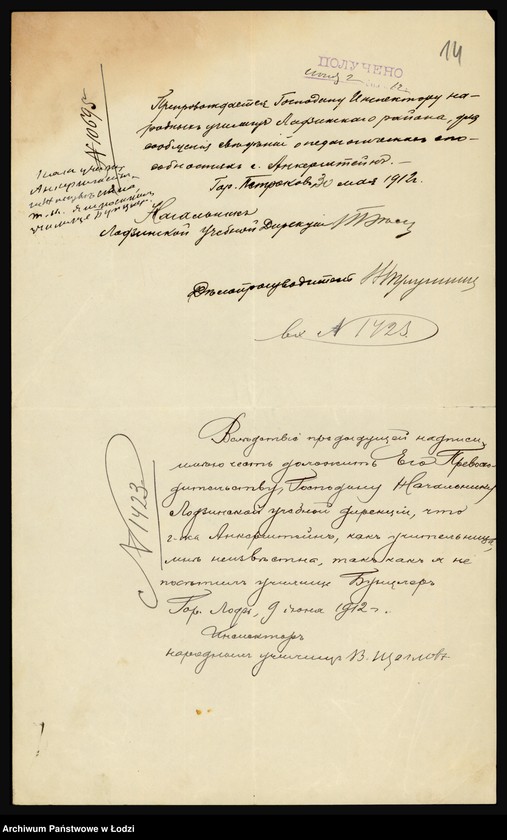 14
ПОЛУЧЕНО
№ 10695
Препровождается Господину Инспектору на-
родныхъ училищъ Лодзинскаго района, для
сообщенія свѣдѣній о педагогическихъ спо-
собностяхъ г. Анкерштейнъ. —
Гор. Петроковъ, 30 мая 1912 г.
Начальникъ
Лодзинской Учебной Дирекціи
Дѣлопроизводитель
вх № 1423.
№ 1423
Вслѣдствіе предыдущей надписи,
имѣю честь доложить Его Превосхо-
дительству, Господину Начальнику
Лодзинской учебной дирекціи, что
г-жа Анкерштейнъ, какъ учительница,
мнѣ неизвѣстна, такъ какъ я не
посѣтилъ училище Бунцлеръ
Гор. Лодзь, 9 іюня 1912 г.
Инспекторъ
народныхъ училищъ В. Щегловъ
Archiwum Państwowe w Łodzi